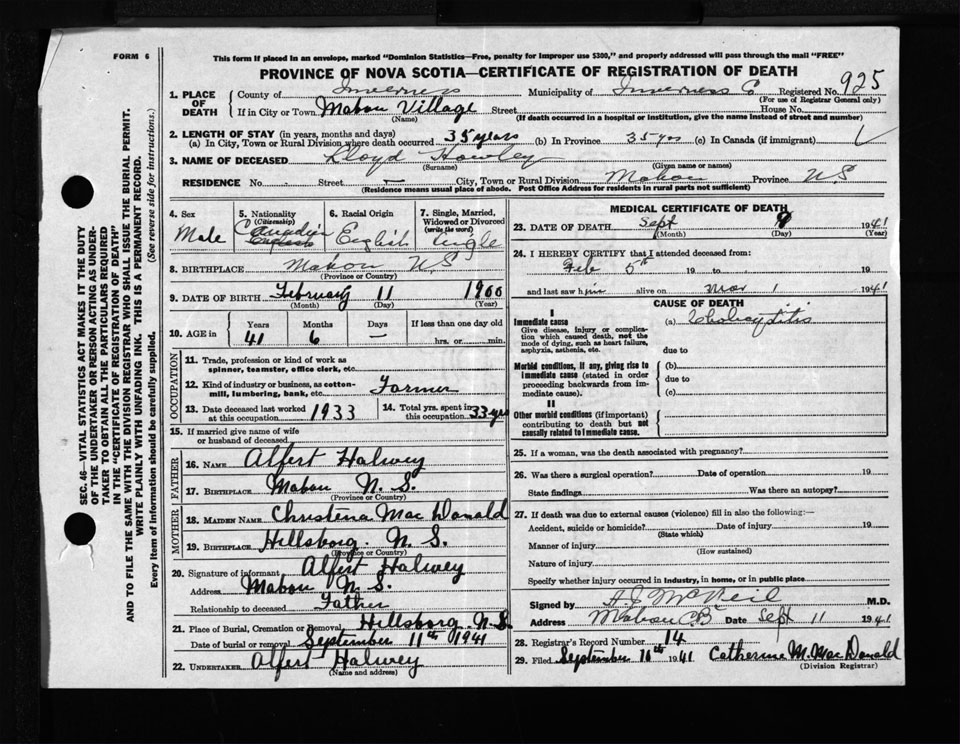 FORM 6
This form if placed in an envelope, marked "Dominion Statistics—Free, penalty for improper use $300," and properly addressed will pass through the mail "FREE"
PROVINCE OF NOVA SCOTIA—CERTIFICATE OF REGISTRATION OF DEATH
925
1. PLACE OF DEATH County of Inverness Municipality of Inverness Co Registered No.
(For use of Registrar General only)
If in City or Town Mabou Village Street House No.
(Name) (If death occurred in a hospital or institution, give the name instead of street and number)
2. LENGTH OF STAY (in years, months and days)
(a) In City, Town or Rural Division where death occurred 35 years (b) In Province 35 yrs (c) In Canada (if immigrant)
3. NAME OF DECEASED Lloyd Hawley
(Surname) (Given name or names)
RESIDENCE No. Street City, Town or Rural Division Mabou Province N S
(Residence means usual place of abode. Post Office Address for residents in rural parts not sufficient)
4. Sex Male
5. Nationality (Citizenship) Canadian
6. Racial Origin English
7. Single, Married, Widowed or Divorced (write the word) Single
8. BIRTHPLACE Mabou N S
(Province or Country)
9. DATE OF BIRTH February 11 1900
(Month) (Day) (Year)
10. AGE in Years Months Days If less than one day old
41 6 — hrs. or min.
OCCUPATION
11. Trade, profession or kind of work as spinner, teamster, office clerk, etc.
12. Kind of industry or business, as cotton-mill, lumbering, bank, etc. Farmer
13. Date deceased last worked at this occupation 1933
14. Total yrs. spent in this occupation 33 yrs
15. If married give name of wife or husband of deceased
FATHER
16. NAME Alfert Halwey
17. BIRTHPLACE Mabou N. S.
(Province or Country)
MOTHER
18. MAIDEN NAME Christena Mac Donald
19. BIRTHPLACE Hillsborg. N. S.
(Province or Country)
20. Signature of informant Alfert Halwey
Address Mabou N. S.
Relationship to deceased Father
21. Place of Burial, Cremation or Removal Hillsborg N.S.
Date of burial or removal September 11th 1941
22. UNDERTAKER Alfert Halwey
(Name and address)
MEDICAL CERTIFICATE OF DEATH
23. DATE OF DEATH Sept 1941
(Month) (Day) (Year)
24. I HEREBY CERTIFY that I attended deceased from:
Feb 5th 19 to 19
and last saw him alive on Mar 1 1941
CAUSE OF DEATH
I
Immediate cause
Give disease, injury or complication which caused death, not the mode of dying, such as heart failure, asphyxia, asthenia, etc.
(a)
due to
Morbid conditions, if any, giving rise to immediate cause (stated in order proceeding backwards from immediate cause).
(b)
due to
(c)
II
Other morbid conditions (if important) contributing to death but not causally related to immediate cause.
25. If a woman, was the death associated with pregnancy?
26. Was there a surgical operation? Date of operation 19
State findings Was there an autopsy?
27. If death was due to external causes (violence) fill in also the following:—
Accident, suicide or homicide? Date of injury 19
(State which)
Manner of injury
(How sustained)
Nature of injury
Specify whether injury occurred in industry, in home, or in public place
Signed by McNeil M.D.
Address Mabou CB Date Sept 11 1941
28. Registrar's Record Number 14
29. Filed September 16th 1941 Catherine M. MacDonald
(Division Registrar)
SEC. 46—VITAL STATISTICS ACT MAKES IT THE DUTY
OF THE UNDERTAKER OR PERSON ACTING AS UNDER-
TAKER TO OBTAIN ALL THE PARTICULARS REQUIRED
IN THE "CERTIFICATE OF REGISTRATION OF DEATH"
AND TO FILE THE SAME WITH THE DIVISION REGISTRAR WHO SHALL ISSUE THE BURIAL PERMIT.
WRITE PLAINLY WITH UNFADING INK. THIS IS A PERMANENT RECORD.
Every item of information should be carefully supplied. (See reverse side for instructions.)